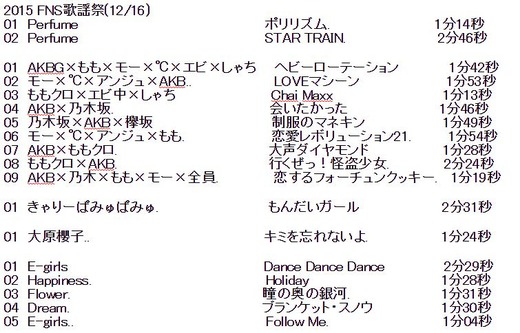 2015 FNS歌謡祭(12/16)
01 Perfume ポリリズム. 1分14秒
02 Perfume STAR TRAIN. 2分46秒
01 AKBG×もも×モー×℃×エビ×しゃち ヘビーローテーション 1分42秒
02 モー×℃×アンジュ×AKB.. LOVEマシーン 1分53秒
03 ももクロ×エビ中×しゃち Chai Maxx 1分13秒
04 AKB×乃木坂. 会いたかった 1分46秒
05 乃木坂×AKB×欅坂 制服のマネキン 1分49秒
06 モー×℃×アンジュ×もも. 恋愛レボリューション21. 1分54秒
07 AKB×ももクロ. 大声ダイヤモンド 1分28秒
08 ももクロ×AKB. 行くぜっ！怪盗少女. 2分24秒
09 AKB×乃木×もも×モー×全員. 恋するフォーチュンクッキー. 1分19秒
01 きゃりーぱみゅぱみゅ. もんだいガール 2分31秒
01 大原櫻子.. キミを忘れないよ. 1分24秒
01 E-girls Dance Dance Dance 2分29秒
02 Happiness. Holiday 1分28秒
03 Flower. 瞳の奥の銀河. 1分31秒
04 Dream. ブランケット・スノウ 1分30秒
05 E-girls.. Follow Me. 1分04秒